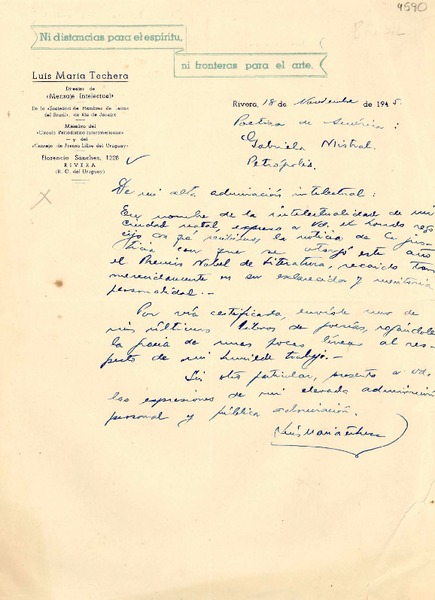 4590
Brasil
Ni distancias para el espíritu,
ni fronteras para el arte.
Luis María Techera
Director de
«Mensaje Intelectual»
De la «Sociedad de Hombres de Letras
del Brasil», de Río de Janeiro
Miembro del
«Círculo Periodístico Interamericano»
y del
«Consejo de Prensa Libre del Uruguay»
Florencio Sánchez, 1226
RIVERA
(R. O. del Uruguay)
Rivera, 18 de Noviembre de 1945.
Poetisa de América:
Gabriela Mistral.
Petrópolis.
De mi alta admiración intelectual:
En nombre de la intelectualidad de mi
ciudad natal, expreso a Vd. el hondo rego
cijo con que recibimos la noticia de la jus
ticia con que se otorgó este año
el Premio Nobel de Literatura, recaído tan
merecidamente en su esclarecida y meritoria
personalidad.-
Por vía certificada, envíole uno de
mis últimos libros de poesías, rogándole
la gracia de unas pocas líneas al res-
pecto de mi humilde trabajo.-
Sin otro particular, presento a Vd.
las expresiones de mi elevada admiración
personal y pública admiración.
Luis María Techera